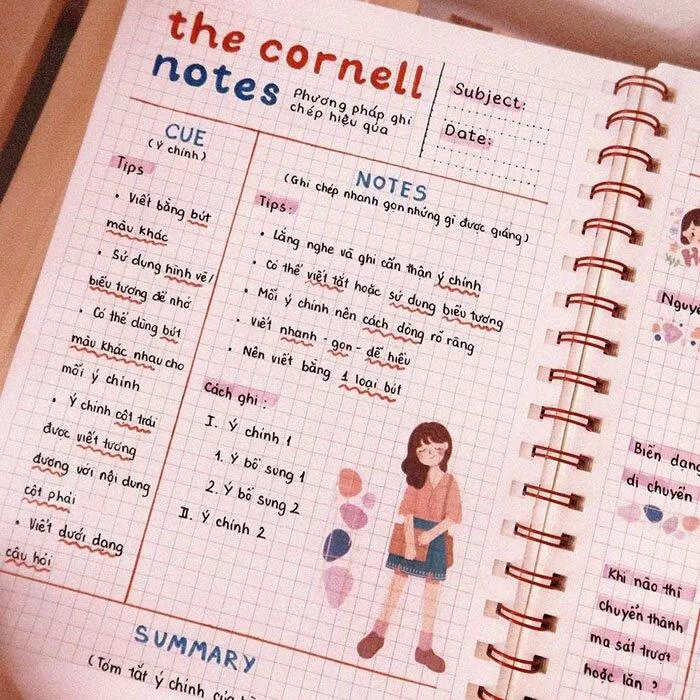 the cornell
notes
Phương pháp ghi
chép hiệu quả
Subject:
Date:
CUE
(Ý chính)
Tips
• Viết bằng bút
màu khác
• Sử dụng hình vẽ/
biểu tượng để nhớ
• Có thể dùng bút
màu khác nhau cho
mỗi ý chính
• Ý chính cột trái
được viết tương
đương với nội dung
cột phải
• Viết dưới dạng
câu hỏi
NOTES
(Ghi chép nhanh gọn những gì được giảng)
Tips:
• Lắng nghe và ghi cẩn thận ý chính
• Có thể viết tắt hoặc sử dụng biểu tượng
• Mỗi ý chính nên cách dòng rõ ràng
• Viết nhanh - gọn - dễ hiểu
• Nên viết bằng 1 loại bút
Cách ghi:
I. Ý chính 1
1. Ý bổ sung 1
2. Ý bổ sung 2
II. Ý chính 2
SUMMARY
(Tóm tắt ý chính của
Nguyê
Biến dạng
di chuyển
Khi nào thì
chuyển thành
ma sát trượt
hoặc lăn ?